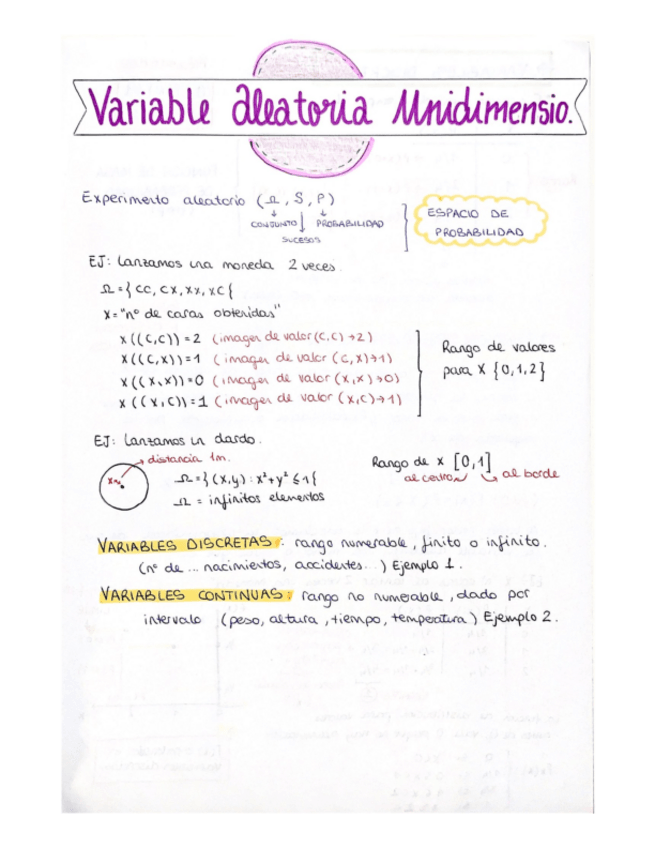 Variable Aleatoria Unidimensio.
Experimento aleatorio (Ω, S, P)
CONJUNTO
PROBABILIDAD
SUCESOS
ESPACIO DE
PROBABILIDAD
EJ: Lanzamos una moneda 2 veces.
Ω = { CC, CX, XX, XC {
X = "nº de caras obtenidas"
X ((C,C)) = 2 (imagen de valor (C,C) → 2)
X ((C,X)) = 1 (imagen de valor (C,X) → 1)
X ((X,X)) = 0 (imagen de valor (X,X) → 0)
X ((X,C)) = 1 (imagen de valor (X,C) → 1)
Rango de valores
para X {0,1,2}
EJ: Lanzamos un dardo.
distancia 1m.
Ω = } (x,y) : x² + y² ≤ 1 {
Ω = infinitos elementos
Rango de X [0,1]
al centro
al borde
VARIABLES DISCRETAS : rango numerable, finito o infinito.
(nº de ... nacimientos, accidentes...) Ejemplo 1.
VARIABLES CONTINUAS : rango no numerable, dado por
intervalo (peso, altura, tiempo, temperatura) Ejemplo 2.